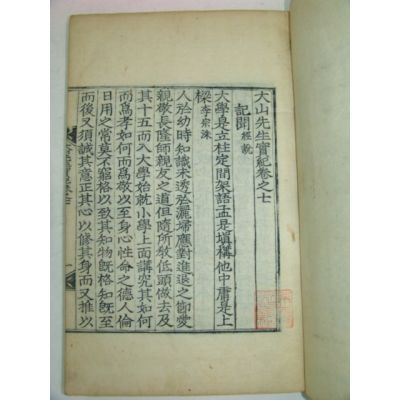 大山先生實紀卷之七
記聞 經說
大學是立柱定間架語孟是塡補他中庸是上
樑 李宗洙
人於幼時知識未透於灑掃應對進退之節愛
親敬長隆師親友之道但隨所敎低頭做去及
其十五而入大學始就小學上面講究其如何
而爲孝如何而爲敬以至身心性命之德人倫
日用之常莫不窮格以致其知物旣格知旣至
而後又須誠其意正其心以修其身而又推以